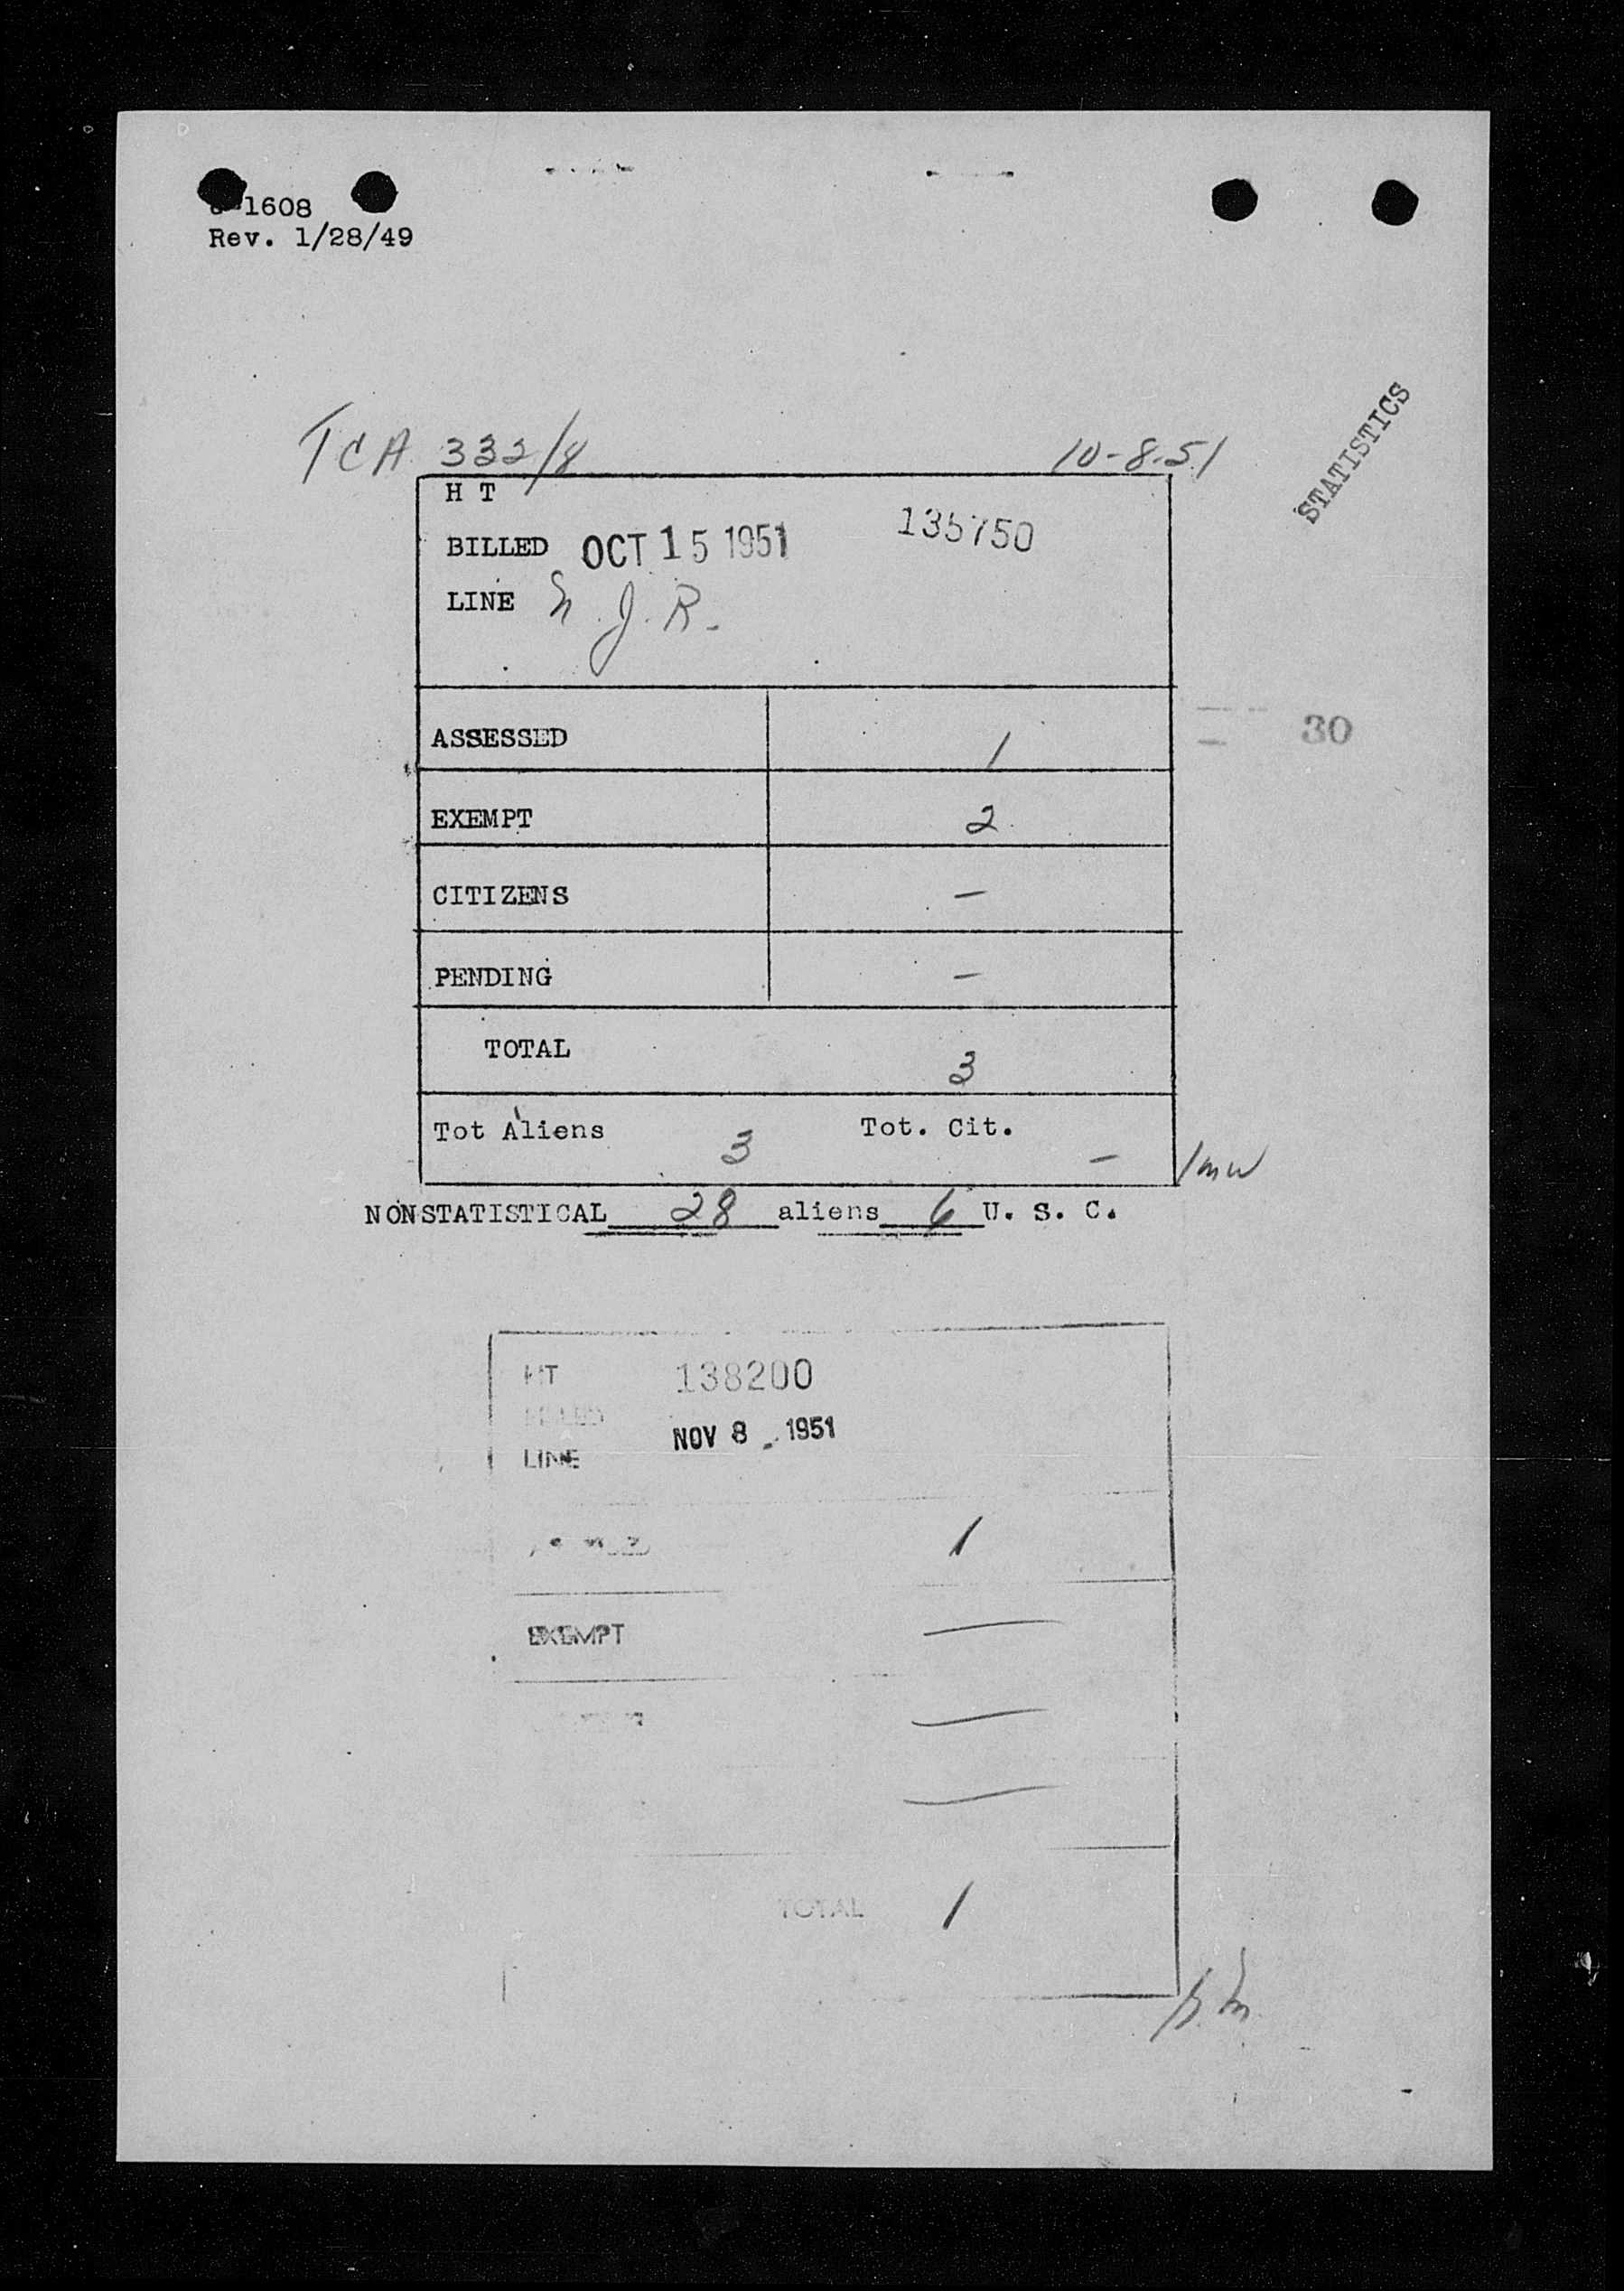 1608
Rev. 1/28/49
STATISTICS
TCA 332/8 10-8-51
H T
BILLED OCT 15 1951 135750
LINE J. R.
ASSESSED 1
30
EXEMPT 2
CITIZENS —
PENDING —
TOTAL 3
Tot Aliens 3 Tot. Cit. —
NONSTATISTICAL 28 aliens 6 U. S. C.
HT 138200
NOV 8 1951
LINE
1
EXEMPT —
—
—
TOTAL 1